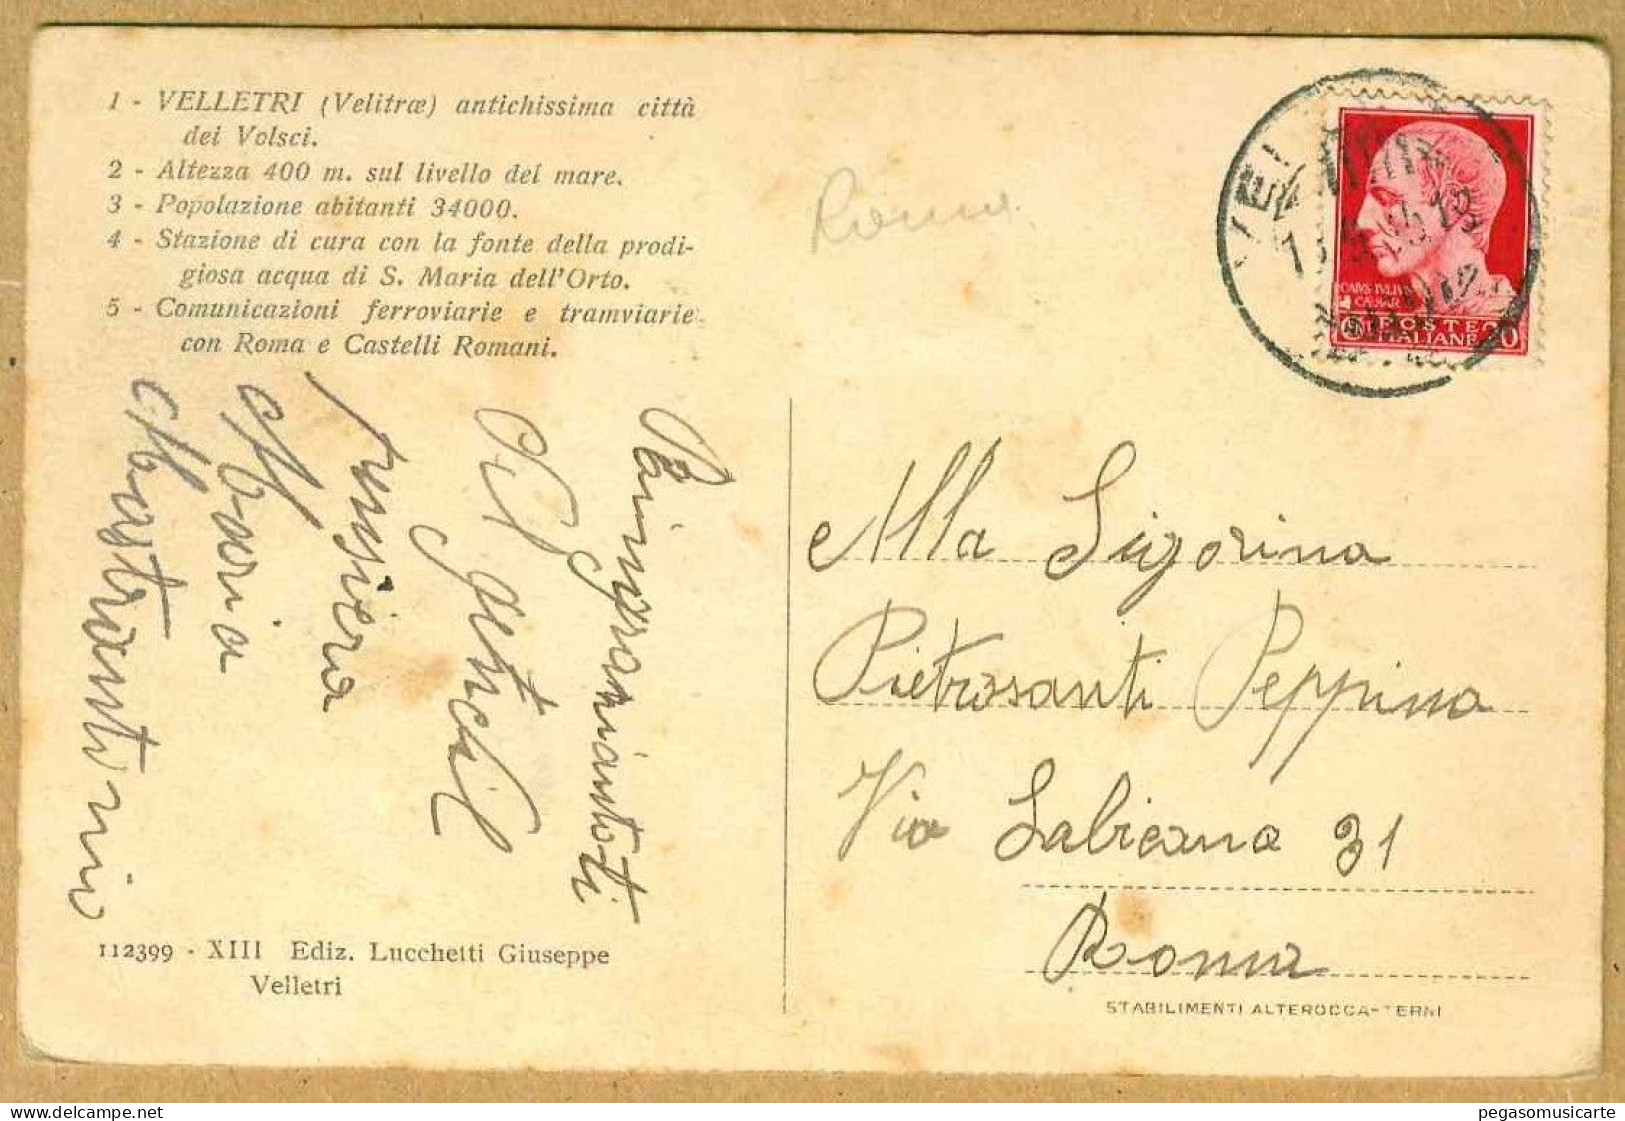 1 - VELLETRI (Velitræ) antichissima città
dei Volsci.
2 - Altezza 400 m. sul livello del mare.
3 - Popolazione abitanti 34000.
4 - Stazione di cura con la fonte della prodi-
giosa acqua di S. Maria dell'Orto.
5 - Comunicazioni ferroviarie e tramviarie
con Roma e Castelli Romani.
Roma
CAIVS IVLIVS
CAESAR
POSTE
ITALIANE
Alla Sigorina
Pietrosanti Peppina
Via Labicana 31
Roma
gentil
Maria
Mastrantonio
112399 - XIII Ediz. Lucchetti Giuseppe
Velletri
STABILIMENTI ALTEROCCA-TERNI
pegasomusicarte